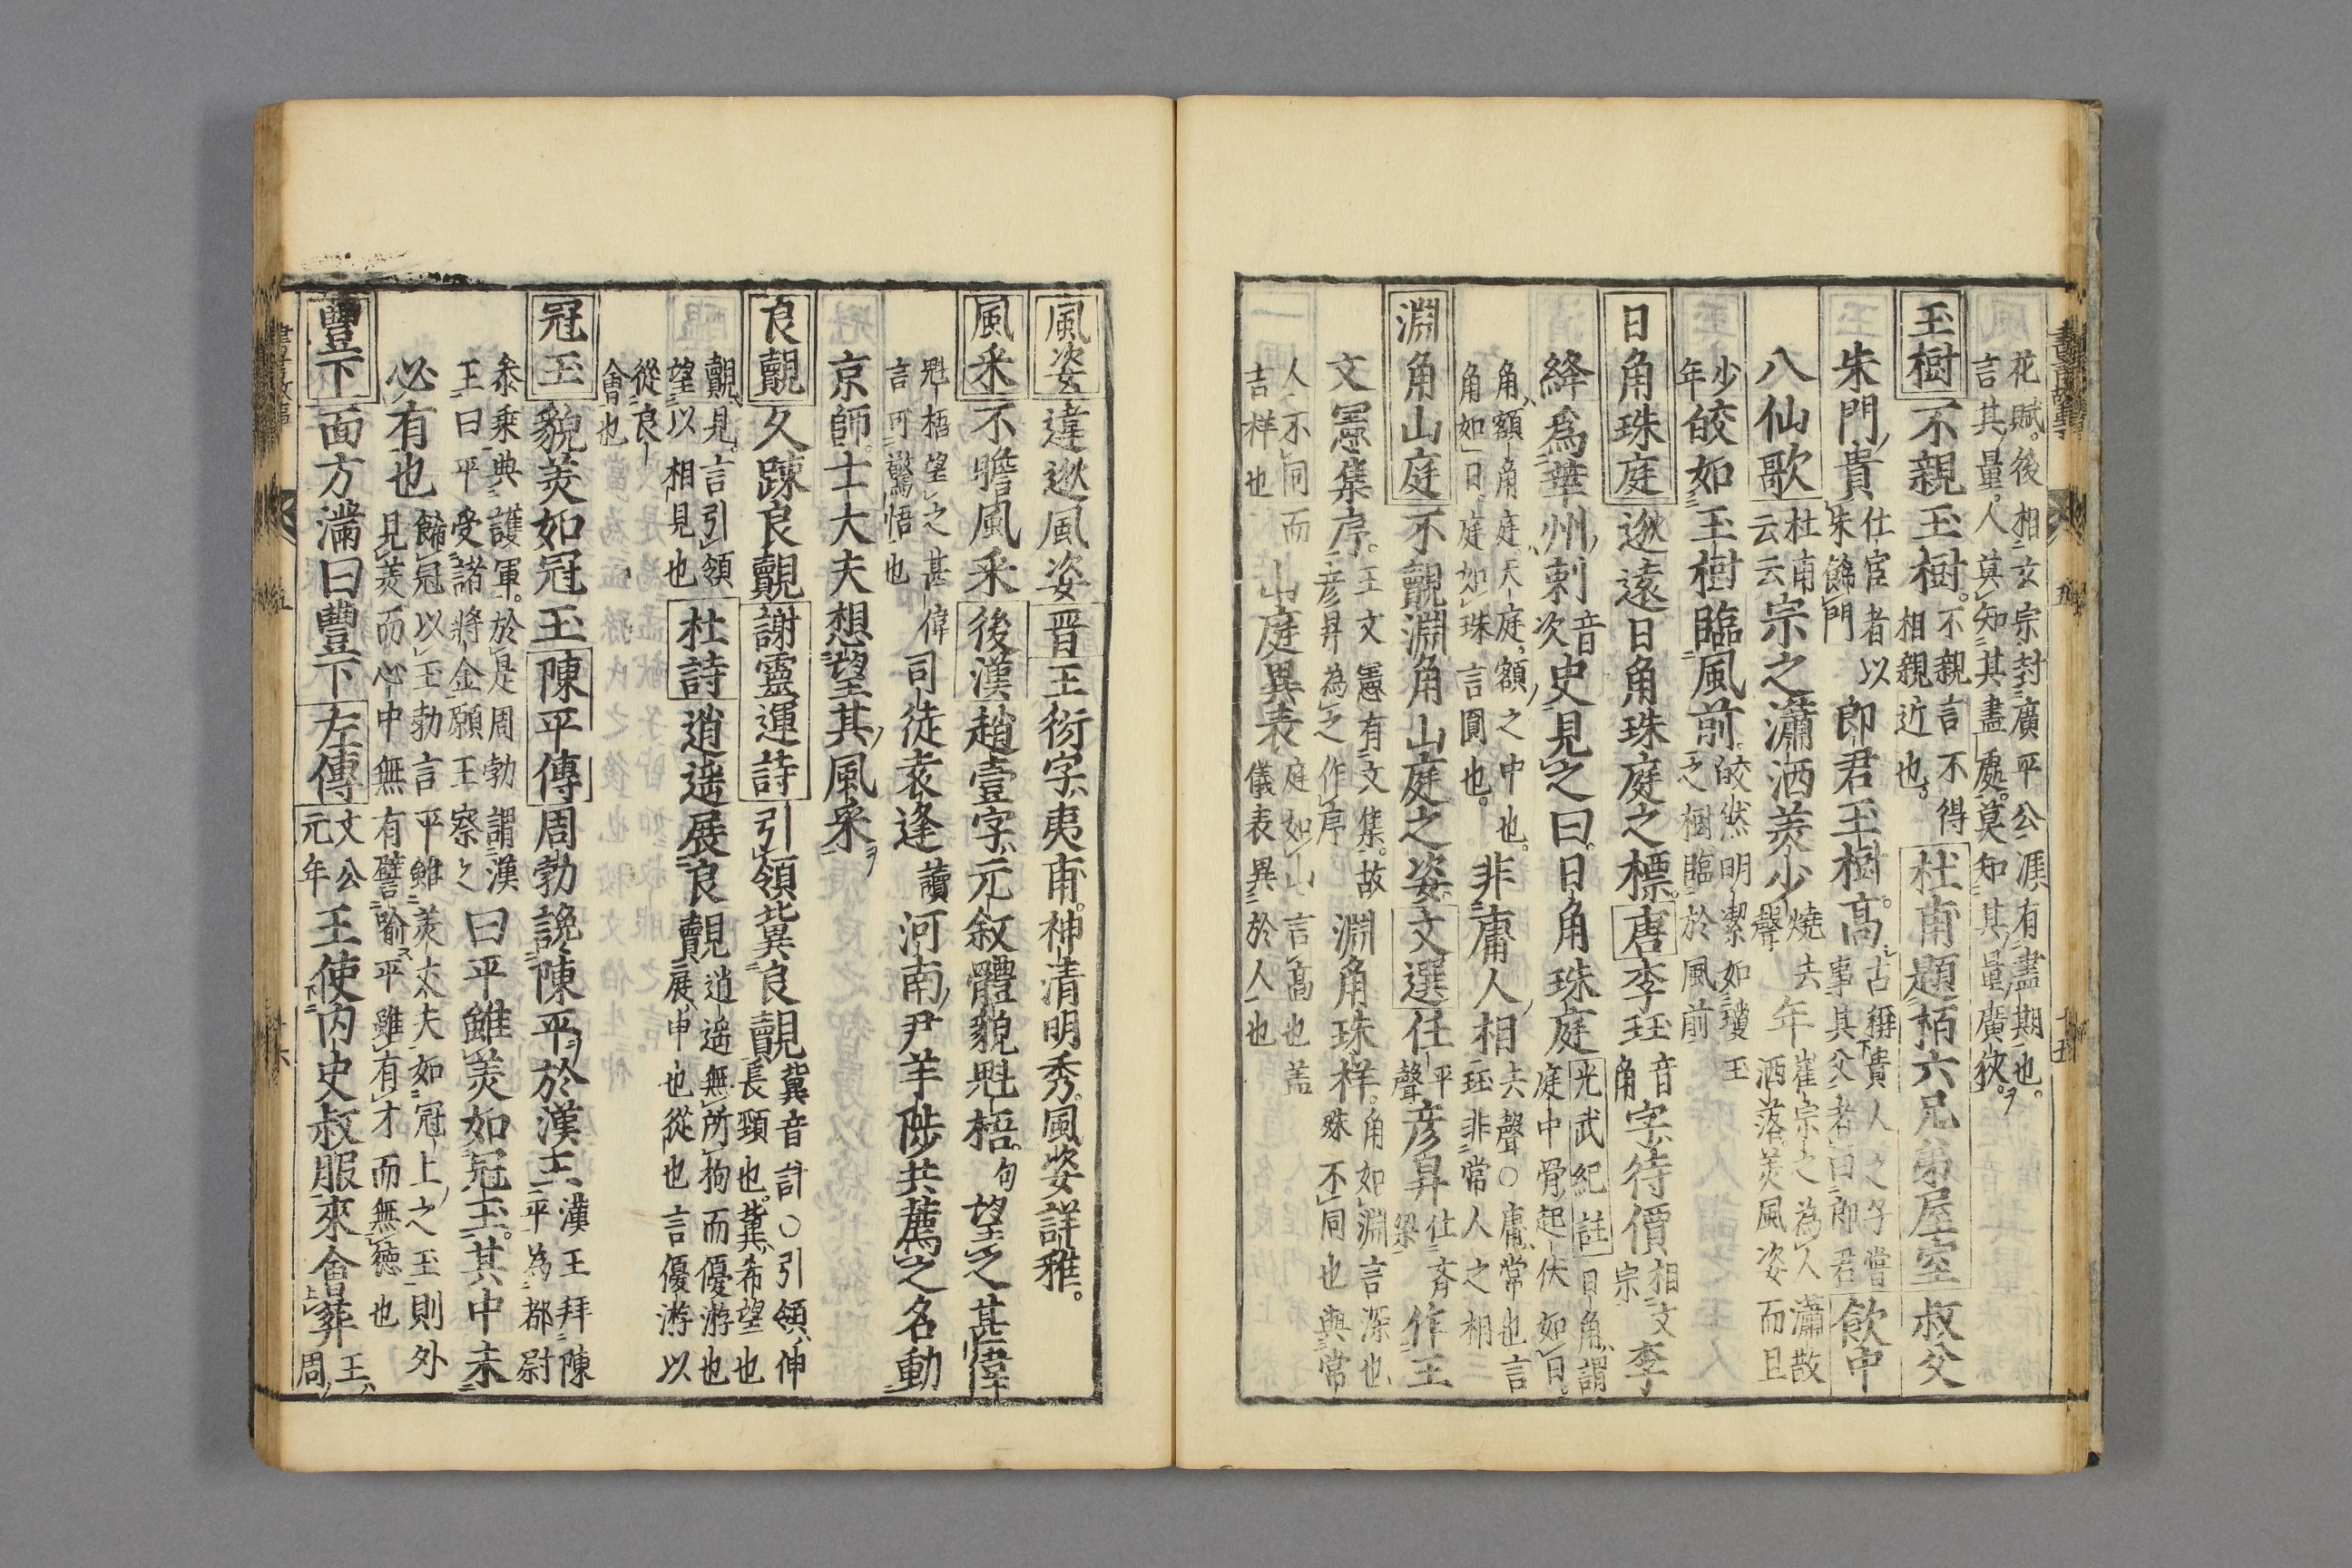 花賦後相玄宗封廣平公涯有盡期也
言其量人莫知其盡處莫知其量廣狹
玉樹不親玉樹不親言不得相親近也杜甫題栢六兄弟屋室叔父
朱門貴仕宦者以朱餙門郎君玉樹高古稱貴人之子嘗事其父者曰郎君飲中
八仙歌杜甫云云宗之瀟洒美少燒去聲年崔宗之為人瀟散洒落美風姿而且
少年皎如玉樹臨風前皎然明潔如瓊玉之樹臨於風前
日角珠庭逖遠日角珠庭之標唐李珏音角字待價相文宗李
絳爲華州刺音次史見之曰日角珠庭光武紀註日角謂庭中骨起伏如日
角額角庭天庭額之中也角如日庭如珠言圓也非庸人相去聲○庸常也言珏非常人之相
淵角山庭不覿淵角山庭之姿文選任平聲彦昇仕齊梁作王
文憲集序王文憲有文集故彦昇為之作序淵角珠様角如淵言深也殊不同也與常
人不同而吉様也山庭異表庭如山言高也盖儀表異於人也
風姿違逖風姿晋王衍字夷甫神清明秀風姿詳雅
風采不瞻風采後漢趙壹字元叙體貌魁梧句望之甚偉
魁梧望之甚偉言可驚悟也司徒袁逢讀河南尹羊陟共薦之名動
京師士大夫想望其風采
良覿久踈良覿謝靈運詩引領兾良覿兾音計○引領伸長頸也兾希望也
覿見言引領望以相見也杜詩逍遥展良覿逍遥無所拘而優游也展申也從也言優游以
從良會也
冠玉貌美如冠玉陳平傳周勃讒陳平於漢王漢王拜陳平為都尉
叅乗典護軍於是周勃謂漢王曰平受諸將金願王察之曰平雖美如冠玉其中未
必有也餙冠以玉勃言平雖美丈夫如冠上之玉則外見美而心中無有譬喻平雖有才而無德也
豐下面方滿曰豐下左傳文公元年王使内史叔服來會葬王周